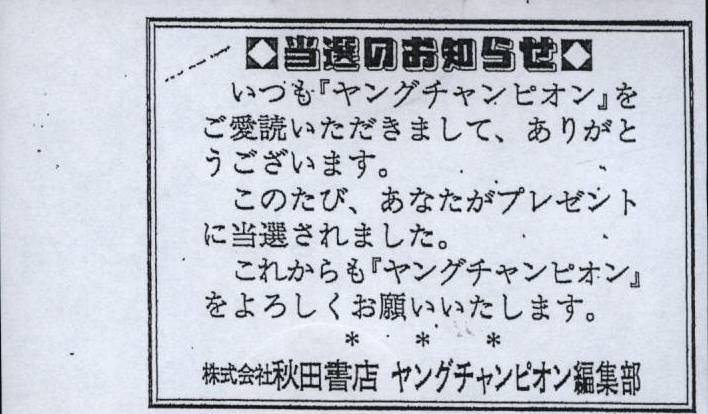 ◇当選のお知らせ◇
いつも『ヤングチャンピオン』を
ご愛読いただきまして、ありがと
うございます。
このたび、あなたがプレゼント
に当選されました。
これからも『ヤングチャンピオン』
をよろしくお願いいたします。
＊　＊　＊
株式会社秋田書店 ヤングチャンピオン編集部